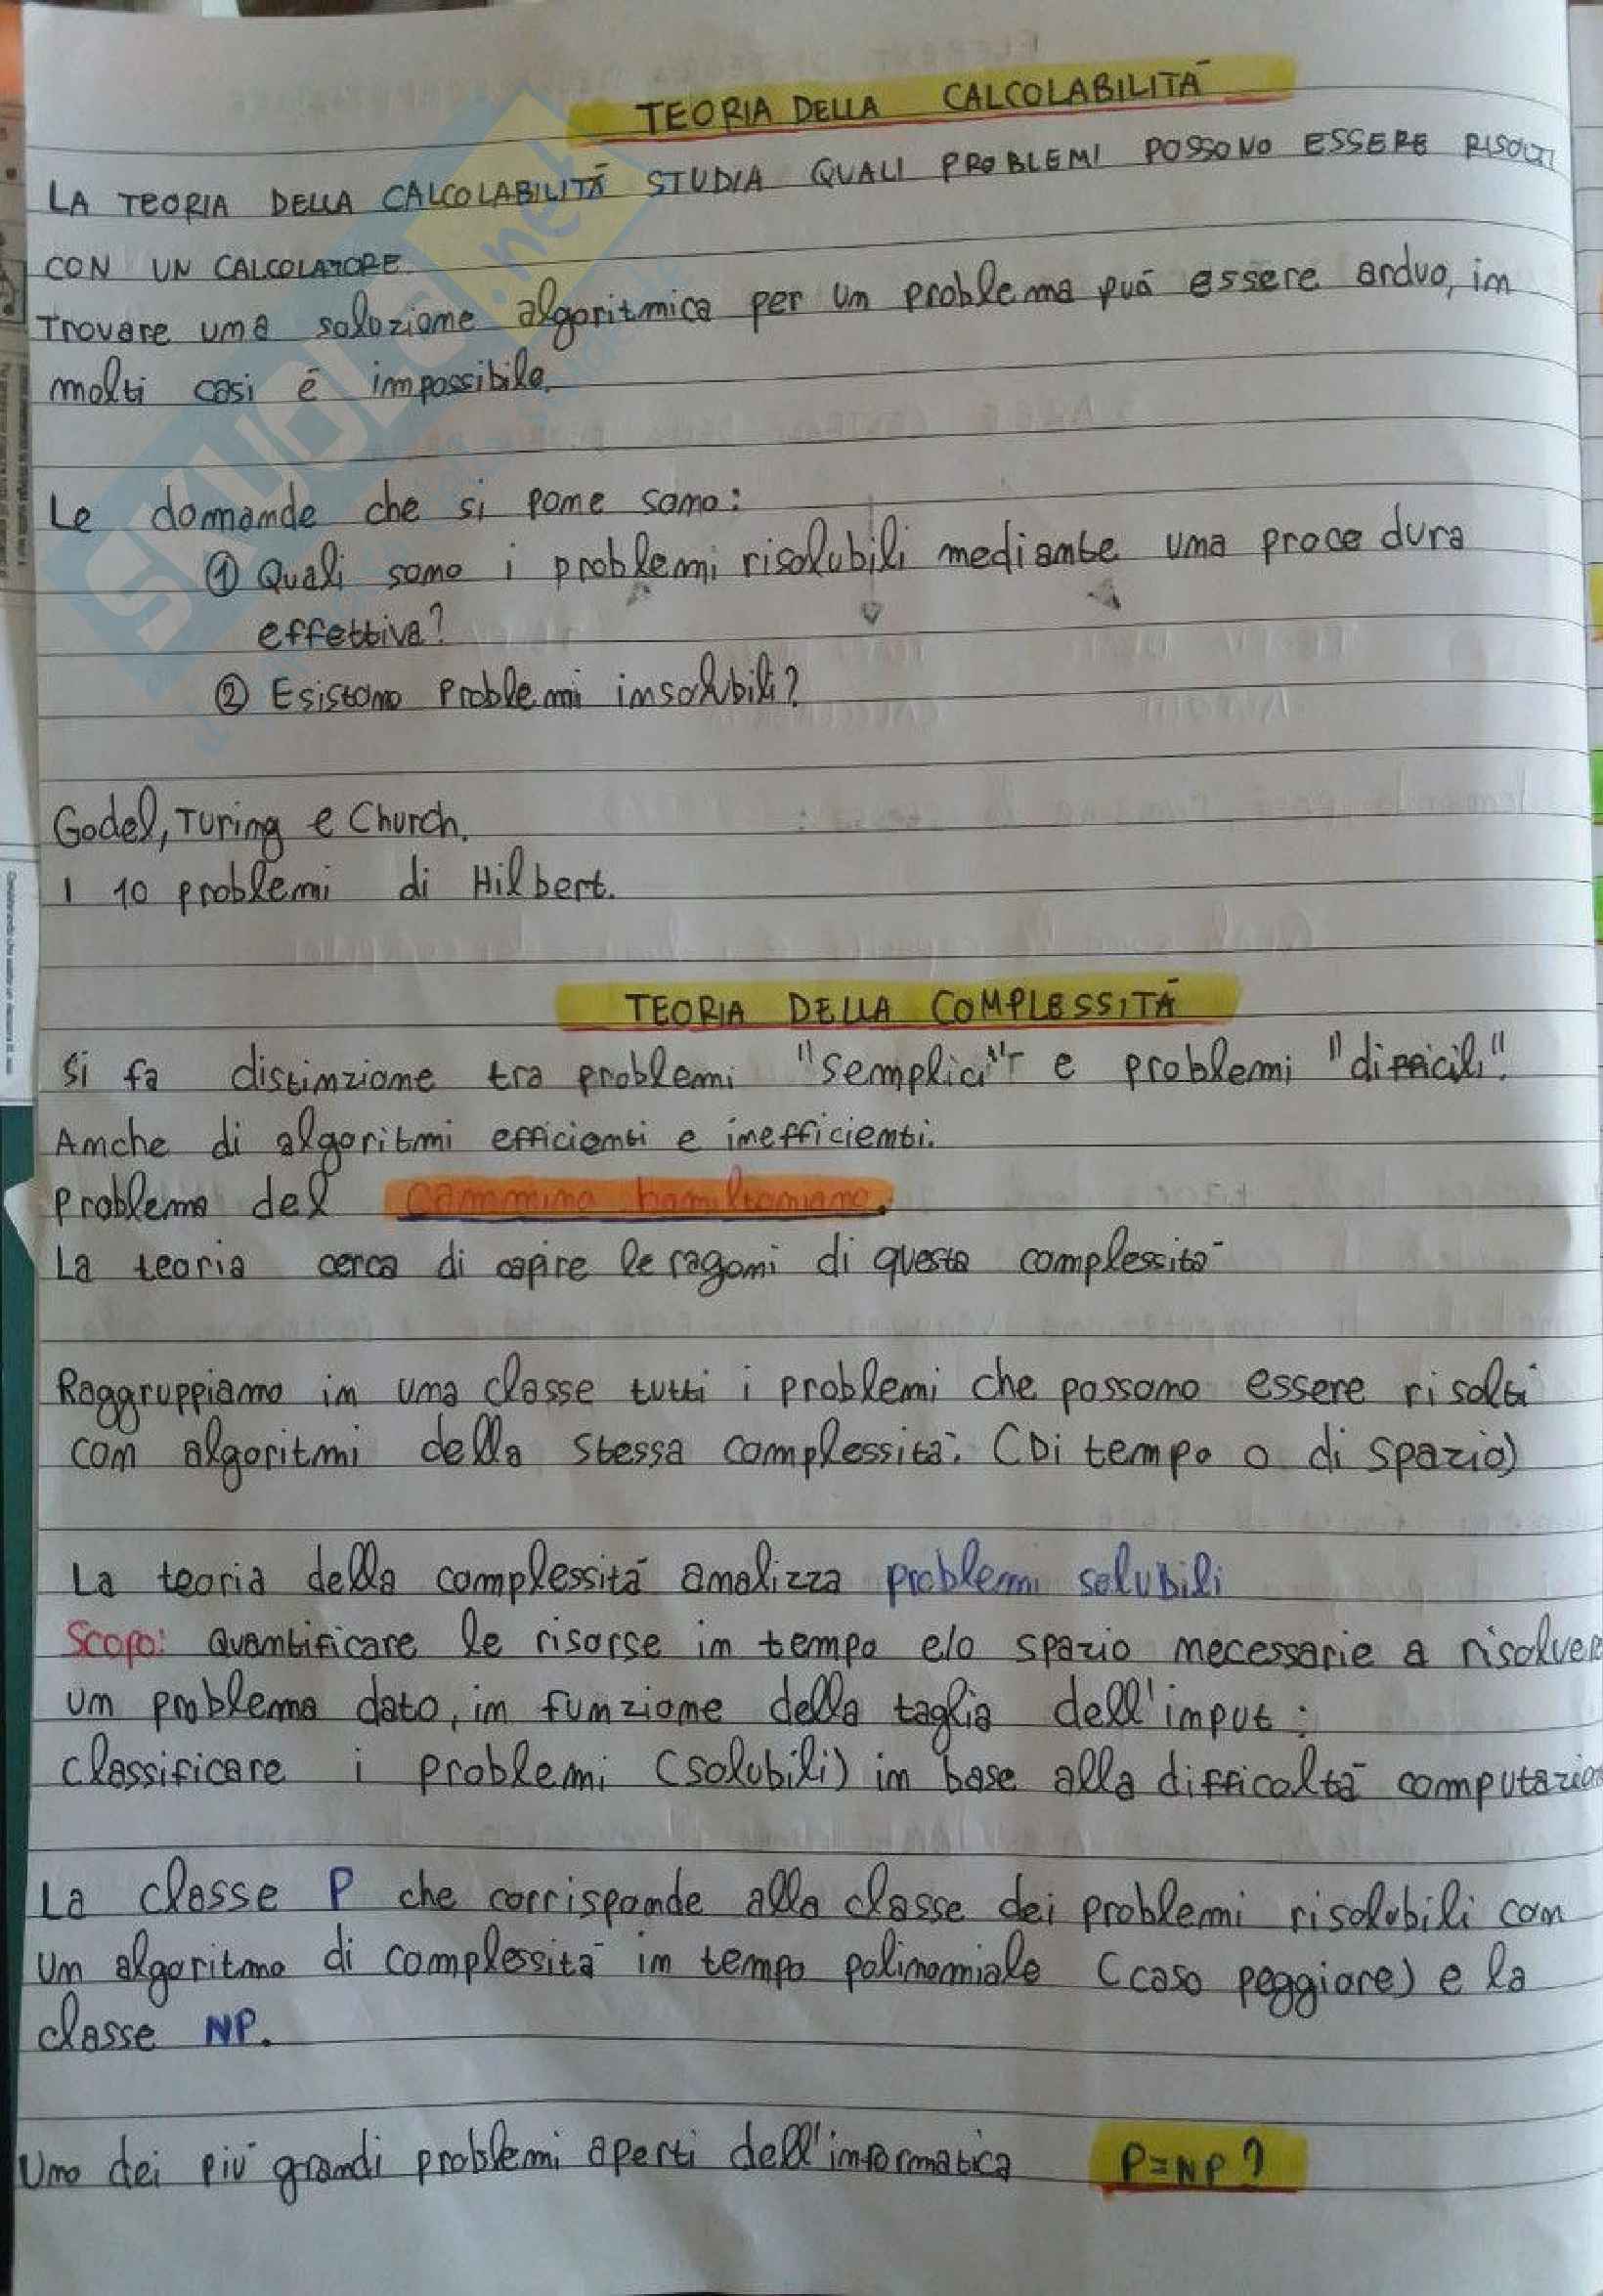 TEORIA DELLA CALCOLABILITÀ
LA TEORIA DELLA CALCOLABILITÀ STUDIA QUALI PROBLEMI POSSONO ESSERE RISOLTI
CON UN CALCOLATORE.
Trovare una soluzione algoritmica per un problema può essere arduo, in
molti casi è impossibile.
Le domande che si pone sono:
① Quali sono i problemi risolubili mediante una procedura
effettiva?
② Esistono problemi insolubili?
Godel, Turing e Church.
I 10 problemi di Hilbert.
TEORIA DELLA COMPLESSITÀ
Si fa distinzione tra problemi "semplici" e problemi "difficili".
Anche di algoritmi efficienti e inefficienti.
Problema del cammino hamiltoniano.
La teoria cerca di capire le ragoni di questa complessità
Raggruppiamo in una classe tutti i problemi che possono essere risolti
con algoritmi della stessa complessità. (Di tempo o di spazio)
La teoria della complessità analizza problemi solubili
Scopo: Quantificare le risorse in tempo e/o spazio necessarie a risolver
un problema dato, in funzione della taglia dell'input:
classificare i problemi (solubili) in base alla difficoltà computazion
La classe P che corrisponde alla classe dei problemi risolubili con
un algoritmo di complessità in tempo polinomiale (caso peggiore) e la
classe NP.
Uno dei più grandi problemi aperti dell'informatica P=NP?
SKUOLA.net